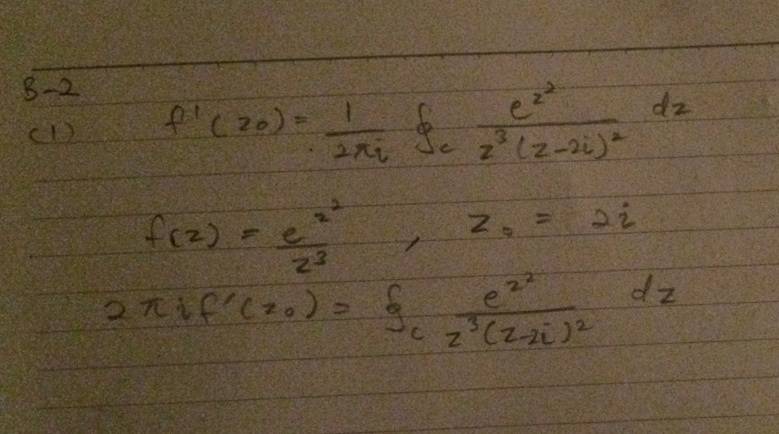 3-2
(1) f'(z₀) = \frac{1}{2πi} ∮_c \frac{e^{z^2}}{z^3(z-2i)^2} dz
f(z) = \frac{e^{z^2}}{z^3} , z₀ = 2i
2πi f'(z₀) = ∮_c \frac{e^{z^2}}{z^3(z-2i)^2} dz